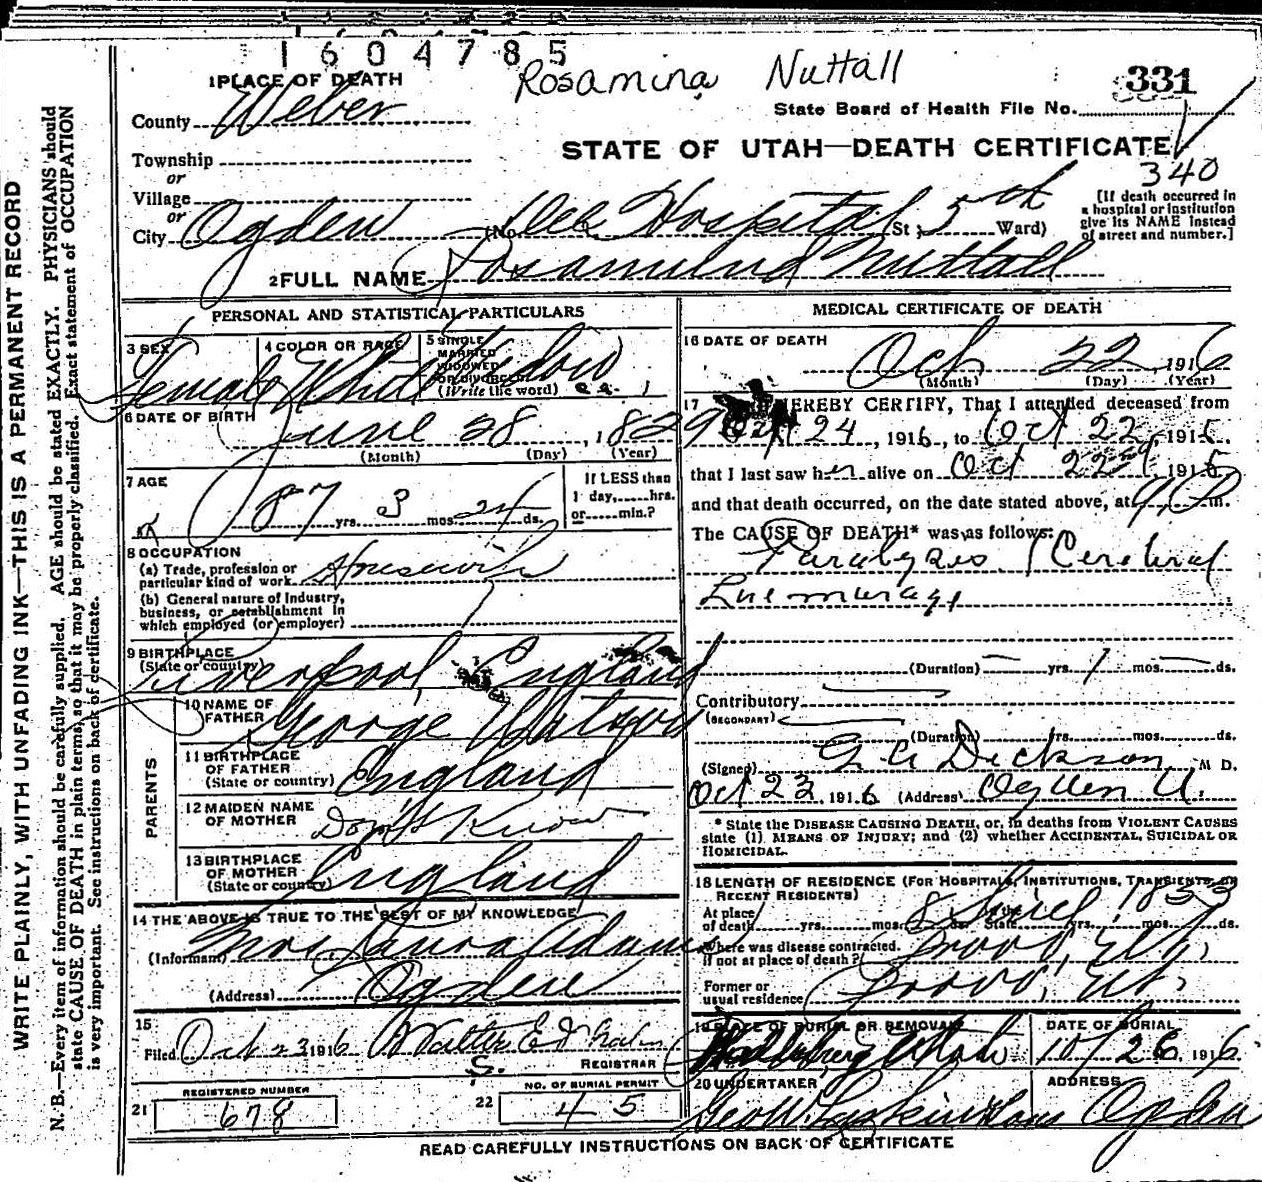 1604785
Rosamina Nuttall
331
1 PLACE OF DEATH
County Weber
State Board of Health File No.
STATE OF UTAH—DEATH CERTIFICATE
340
Township
or
Village
or
City Ogden (No. Dee Hospital St; 5th Ward)
[If death occurred in a hospital or institution give its NAME instead of street and number.]
2 FULL NAME Nuttall
PERSONAL AND STATISTICAL PARTICULARS
3 SEX Female
4 COLOR OR RACE White
5 SINGLE MARRIED WIDOWED OR DIVORCED (Write the word) Widow
6 DATE OF BIRTH June 28, 1829
(Month) (Day) (Year)
7 AGE 87 yrs. 3 mos. 24 ds.
If LESS than 1 day, hrs. or min.?
8 OCCUPATION
(a) Trade, profession or particular kind of work Housewife
(b) General nature of Industry, business, or establishment in which employed (or employer)
9 BIRTHPLACE
(State or country) Liverpool England
PARENTS
10 NAME OF FATHER George Watson
11 BIRTHPLACE OF FATHER (State or country) England
12 MAIDEN NAME OF MOTHER Don't Know
13 BIRTHPLACE OF MOTHER (State or country) England
14 THE ABOVE IS TRUE TO THE BEST OF MY KNOWLEDGE
(Informant) Mrs. Laura Adams
(Address) Ogden
15
Filed Oct 23 1916 Walter E
REGISTRAR
REGISTERED NUMBER
21 678
NO. OF BURIAL PERMIT
22 45
MEDICAL CERTIFICATE OF DEATH
16 DATE OF DEATH
Oct 22 1916
(Month) (Day) (Year)
17 HEREBY CERTIFY, That I attended deceased from
24, 1916, to Oct 22, 1916.
that I last saw her alive on Oct 22nd 1916
and that death occurred, on the date stated above, at 9 P m.
The CAUSE OF DEATH* was as follows:
Paralysis (Cerebral
(Duration) — yrs. 1 mos. — ds.
Contributory
(SECONDARY)
(Duration) yrs. mos. ds.
(Signed) Dickson M D.
Oct 23, 1916 (Address) Ogden U.
* State the DISEASE CAUSING DEATH, or, in deaths from VIOLENT CAUSES
state (1) MEANS OF INJURY; and (2) whether ACCIDENTAL, SUICIDAL OR
HOMICIDAL.
18 LENGTH OF RESIDENCE (FOR HOSPITALS, INSTITUTIONS, TRANSIENTS, OR
RECENT RESIDENTS)
At place of death yrs. mos. 8 ds. State Since yrs. mos. ds.
Where was disease contracted. if not at place of death? Provo, Ut,
Former or usual residence Provo, Ut,
19 PLACE OF BURIAL OR REMOVAL Utah
DATE OF BURIAL 10/26, 1916
20 UNDERTAKER Geo W. Larkin & Sons
ADDRESS Ogden
READ CAREFULLY INSTRUCTIONS ON BACK OF CERTIFICATE
WRITE PLAINLY, WITH UNFADING INK—THIS IS A PERMANENT RECORD
N. B.—Every item of information should be carefully supplied. AGE should be stated EXACTLY. PHYSICIANS should
state CAUSE OF DEATH in plain terms, so that it may be properly classified. Exact statement of OCCUPATION
is very important. See instructions on back of certificate.